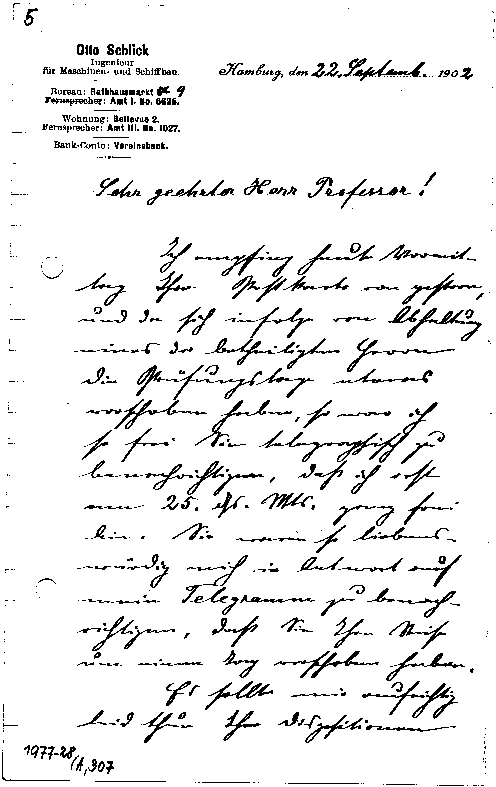 5
Otto Schlick
Ingenieur
für Maschinen- und Schiffbau.
Bureau: Rathhausmarkt 9
Fernsprecher: Amt I. No. 6626.
Wohnung: Bellevue 2.
Fernsprecher: Amt III. No. 1027.
Bank-Conto: Vereinsbank.
Hamburg, den 22. Septemb. 1902
Sehr geehrter Herr Professor!
Ich empfing heute Vormit-
tag Ihre Postkarte von gestern,
und da sich infolge von Abhaltung
eines der betheiligten Herren
die Prüfungstage etwas
verschoben haben, so war ich
so frei Sie telegraphisch zu
benachrichtigen, daß ich erst
am 25. ds. Mts. ganz frei
bin. Sie waren so liebens-
würdig mich in Antwort auf
mein Telegramm zu benach-
richtigen, daß Sie Ihre Reise
um einen Tag verschoben haben.
Es sollte mir aufrichtig
leid thun Ihre Dispositionen
1977-28
(A,307